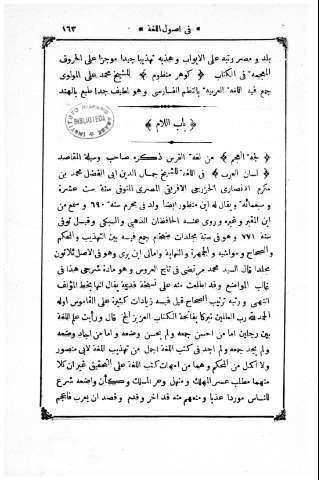 * في اصول اللغة *
١٦٣
بلد ومصر رتبه على الابواب وهذبه تهذيبا جيدا موجزا على الحروف
المعجمة في الكتاب ﴿ كوهر منظوم ﴾ للشيخ محمد على المولوى
جمع فيه اللغة العربية بالنظم الفارسى وهو لطيف جدا طبع بالهند
BIBLIOTECA
﴿ باب اللام ﴾
﴿ لجة العجم ﴾ من لغة الفرس ذكره صاحب وسيلة المقاصد
﴿ لسان العرب ﴾ فى اللغة للشيخ جمال الدين ابى الفضل محمد بن
مكرم الانصارى الخزرجى الافريقى المصرى المتوفى سنة ست عشرة
وسبعمائة ويقال له ابن منظور ايضا ولد فى محرم سنة ٦٩٠ وسمع من
ابن المقير وغيره وروى عنه الحافظان الذهبى والسبكى وقيل توفى
سنة ٧٧١ وهو فى ستة مجلدات ضخام جمع فيه بين التهذيب والمحكم
والصحاح وحواشيه والجمهرة والنهاية وامالى ابن برى وهو فى الاصل ثلاثون
مجلدا قال السيد محمد مرتضى فى تاج العروس وهو مادة شرحى هذا فى
غالب المواضع وقد اطلعت منه على نسخة قديمة يقال انها بخط المؤلف
انتهى ورتبه ترتيب الصحاح قيل فيه زيادات كثيرة على القاموس اوله
الحمد لله رب العالمين تبركا بفاتحة الكتاب العزيز الخ قال ورأيت علم اللغة
بين رجلين اما من احسن جمعه ولم يحسن وضعه واما من اجاد وضعه
ولم يجد جمعه ولم اجد فى كتب اللغة اجمل من تهذيب اللغة لابى منصور
ولا اكمل من المحكم وهما من امهات كتب اللغة على التحقيق غير ان كلا
منهما مطلب عسر المهلك ومنهل وعر المسلك وكأن واضعه شرع
للناس موردا عذبا ومنعهم منه قد اخر وقدم وقصد ان يعرب فاعجم